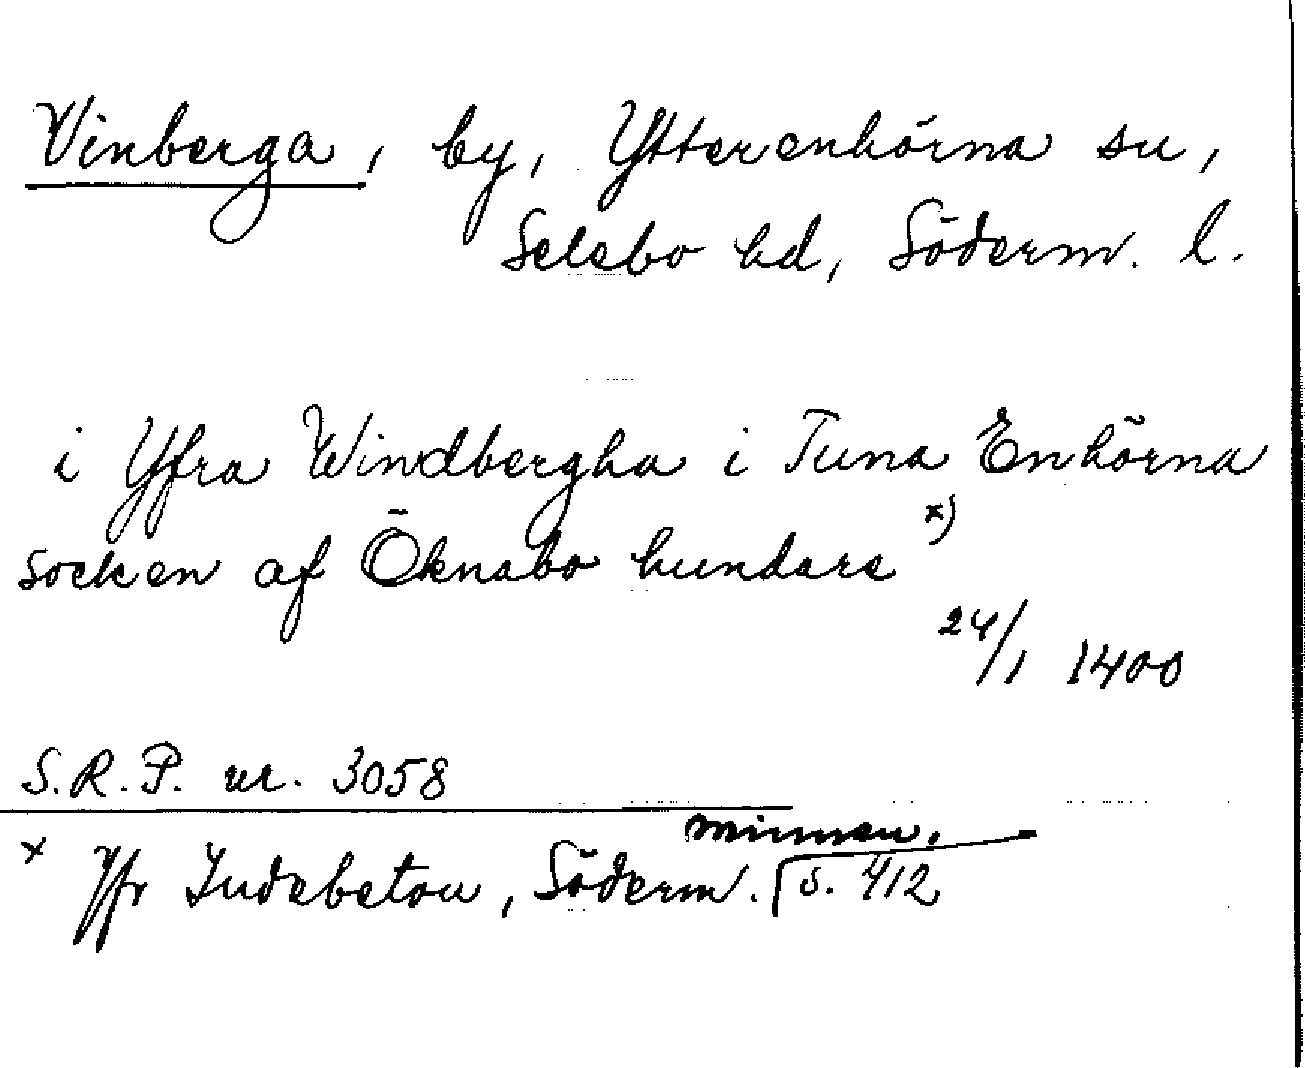 Vinberga, by, Ytterenhörna sn,
Selebo hd, Söderm. l.
i Yfra Windbergha i Tuna Enhörna
socken af Öknabo hundare x)
24/1 1400
S.R.P. nr. 3058
x Jfr Indebetou, Söderm. minnen. s. 412